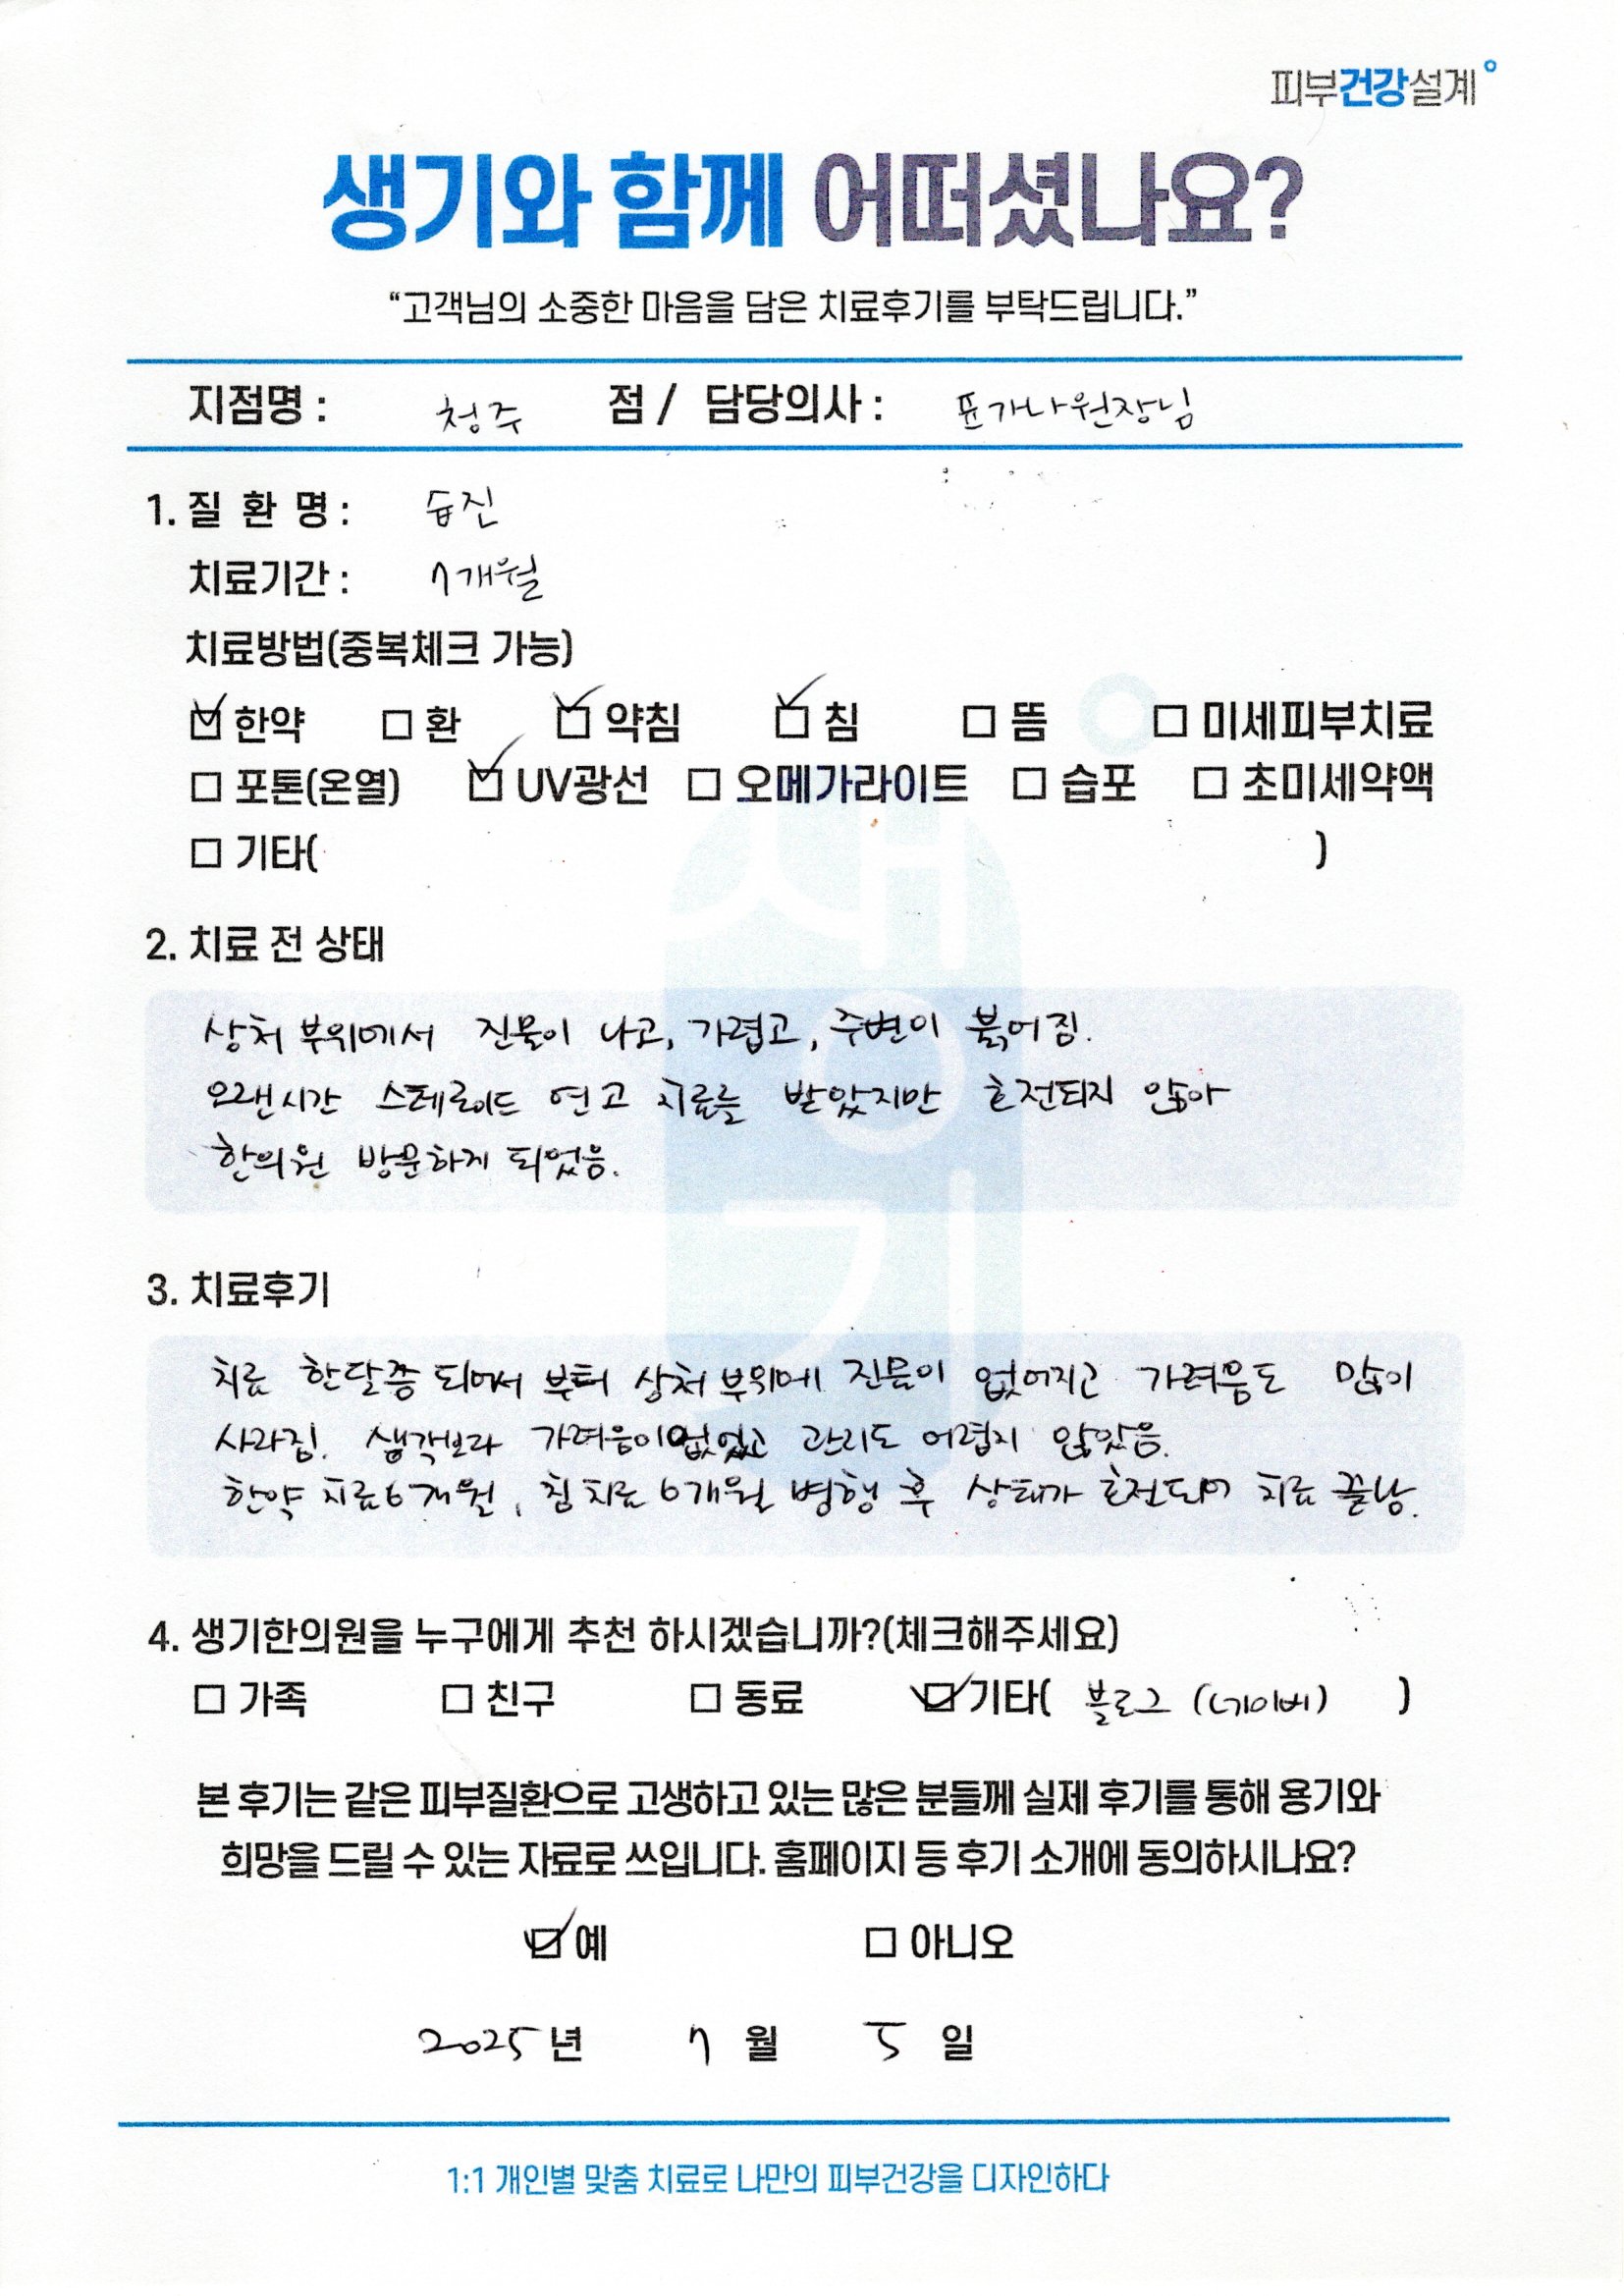 피부건강설계
생기와 함께 어떠셨나요?
“고객님의 소중한 마음을 담은 치료후기를 부탁드립니다.”
지점명 : 청주 점 / 담당의사 : 윤가나원장님
1. 질 환 명 : 습진
치료기간 : 7개월
치료방법(중복체크 가능)
☑ 한약 ☐ 환 ☑ 약침 ☑ 침 ☐ 뜸 ☐ 미세피부치료
☐ 포톤(온열) ☑ UV광선 ☐ 오메가라이트 ☐ 습포 ☐ 초미세약액
☐ 기타( )
2. 치료 전 상태
상처 부위에서 진물이 나고, 가렵고, 주변이 붉어짐.
오랜시간 스테로이드 연고 치료를 받았지만 호전되지 않아
한의원 방문하게 되었음.
3. 치료후기
치료 한달쯤 되어서 부터 상처 부위에 진물이 없어지고 가려움도 많이
사라짐. 생각보다 가려움이 없었고 관리도 어렵지 않았음.
한약 치료 6개월, 침 치료 6개월 병행 후 상태가 호전되어 치료 끝남.
4. 생기한의원을 누구에게 추천 하시겠습니까?(체크해주세요)
☐ 가족 ☐ 친구 ☐ 동료 ☑ 기타( 블로그 (네이버) )
본 후기는 같은 피부질환으로 고생하고 있는 많은 분들께 실제 후기를 통해 용기와
희망을 드릴 수 있는 자료로 쓰입니다. 홈페이지 등 후기 소개에 동의하시나요?
☑ 예 ☐ 아니오
2025 년 7 월 5 일
1:1 개인별 맞춤 치료로 나만의 피부건강을 디자인하다
생기